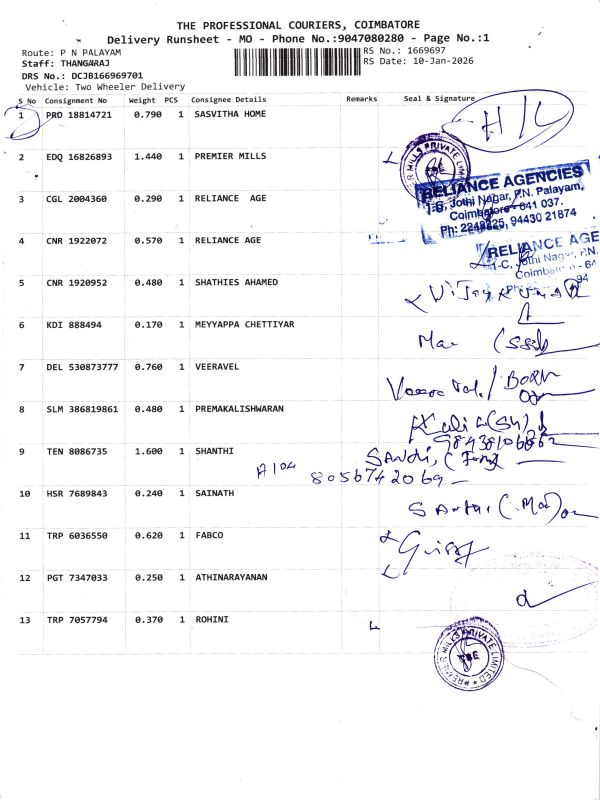 THE PROFESSIONAL COURIERS, COIMBATORE
Delivery Runsheet - MO - Phone No.:9047080280 - Page No.:1
Route: P N PALAYAM
RS No.: 1669697
Staff: THANGARAJ
RS Date: 10-Jan-2026
DRS No.: DCJB166969701
Vehicle: Two Wheeler Delivery
S No Consignment No Weight PCS Consignee Details Remarks Seal & Signature
1 PRO 18814721 0.790 1 SASVITHA HOME
H/C
2 EDQ 16826893 1.440 1 PREMIER MILLS
RELIANCE AGENCIES
Jothi Nagar, P.N. Palayam,
Coimbatore - 641 037.
Ph: 2248225, 94430 21874
3 CGL 2004360 0.290 1 RELIANCE AGE
4 CNR 1922072 0.570 1 RELIANCE AGE
RELIANCE AGE
1-C, Jothi Nagar, P.N.
Coimbato - 64
94
5 CNR 1920952 0.480 1 SHATHIES AHAMED
6 KDI 888494 0.170 1 MEYYAPPA CHETTIYAR
7 DEL 530873777 0.760 1 VEERAVEL
8 SLM 386819861 0.480 1 PREMAKALISHWARAN
98438106662
9 TEN 8086735 1.600 1 SHANTHI
A104
8056742069
10 HSR 7689843 0.240 1 SAINATH
11 TRP 6036550 0.620 1 FABCO
12 PGT 7347033 0.250 1 ATHINARAYANAN
13 TRP 7057794 0.370 1 ROHINI
PREMIER MILLS PRIVATE LIMITED
CBE